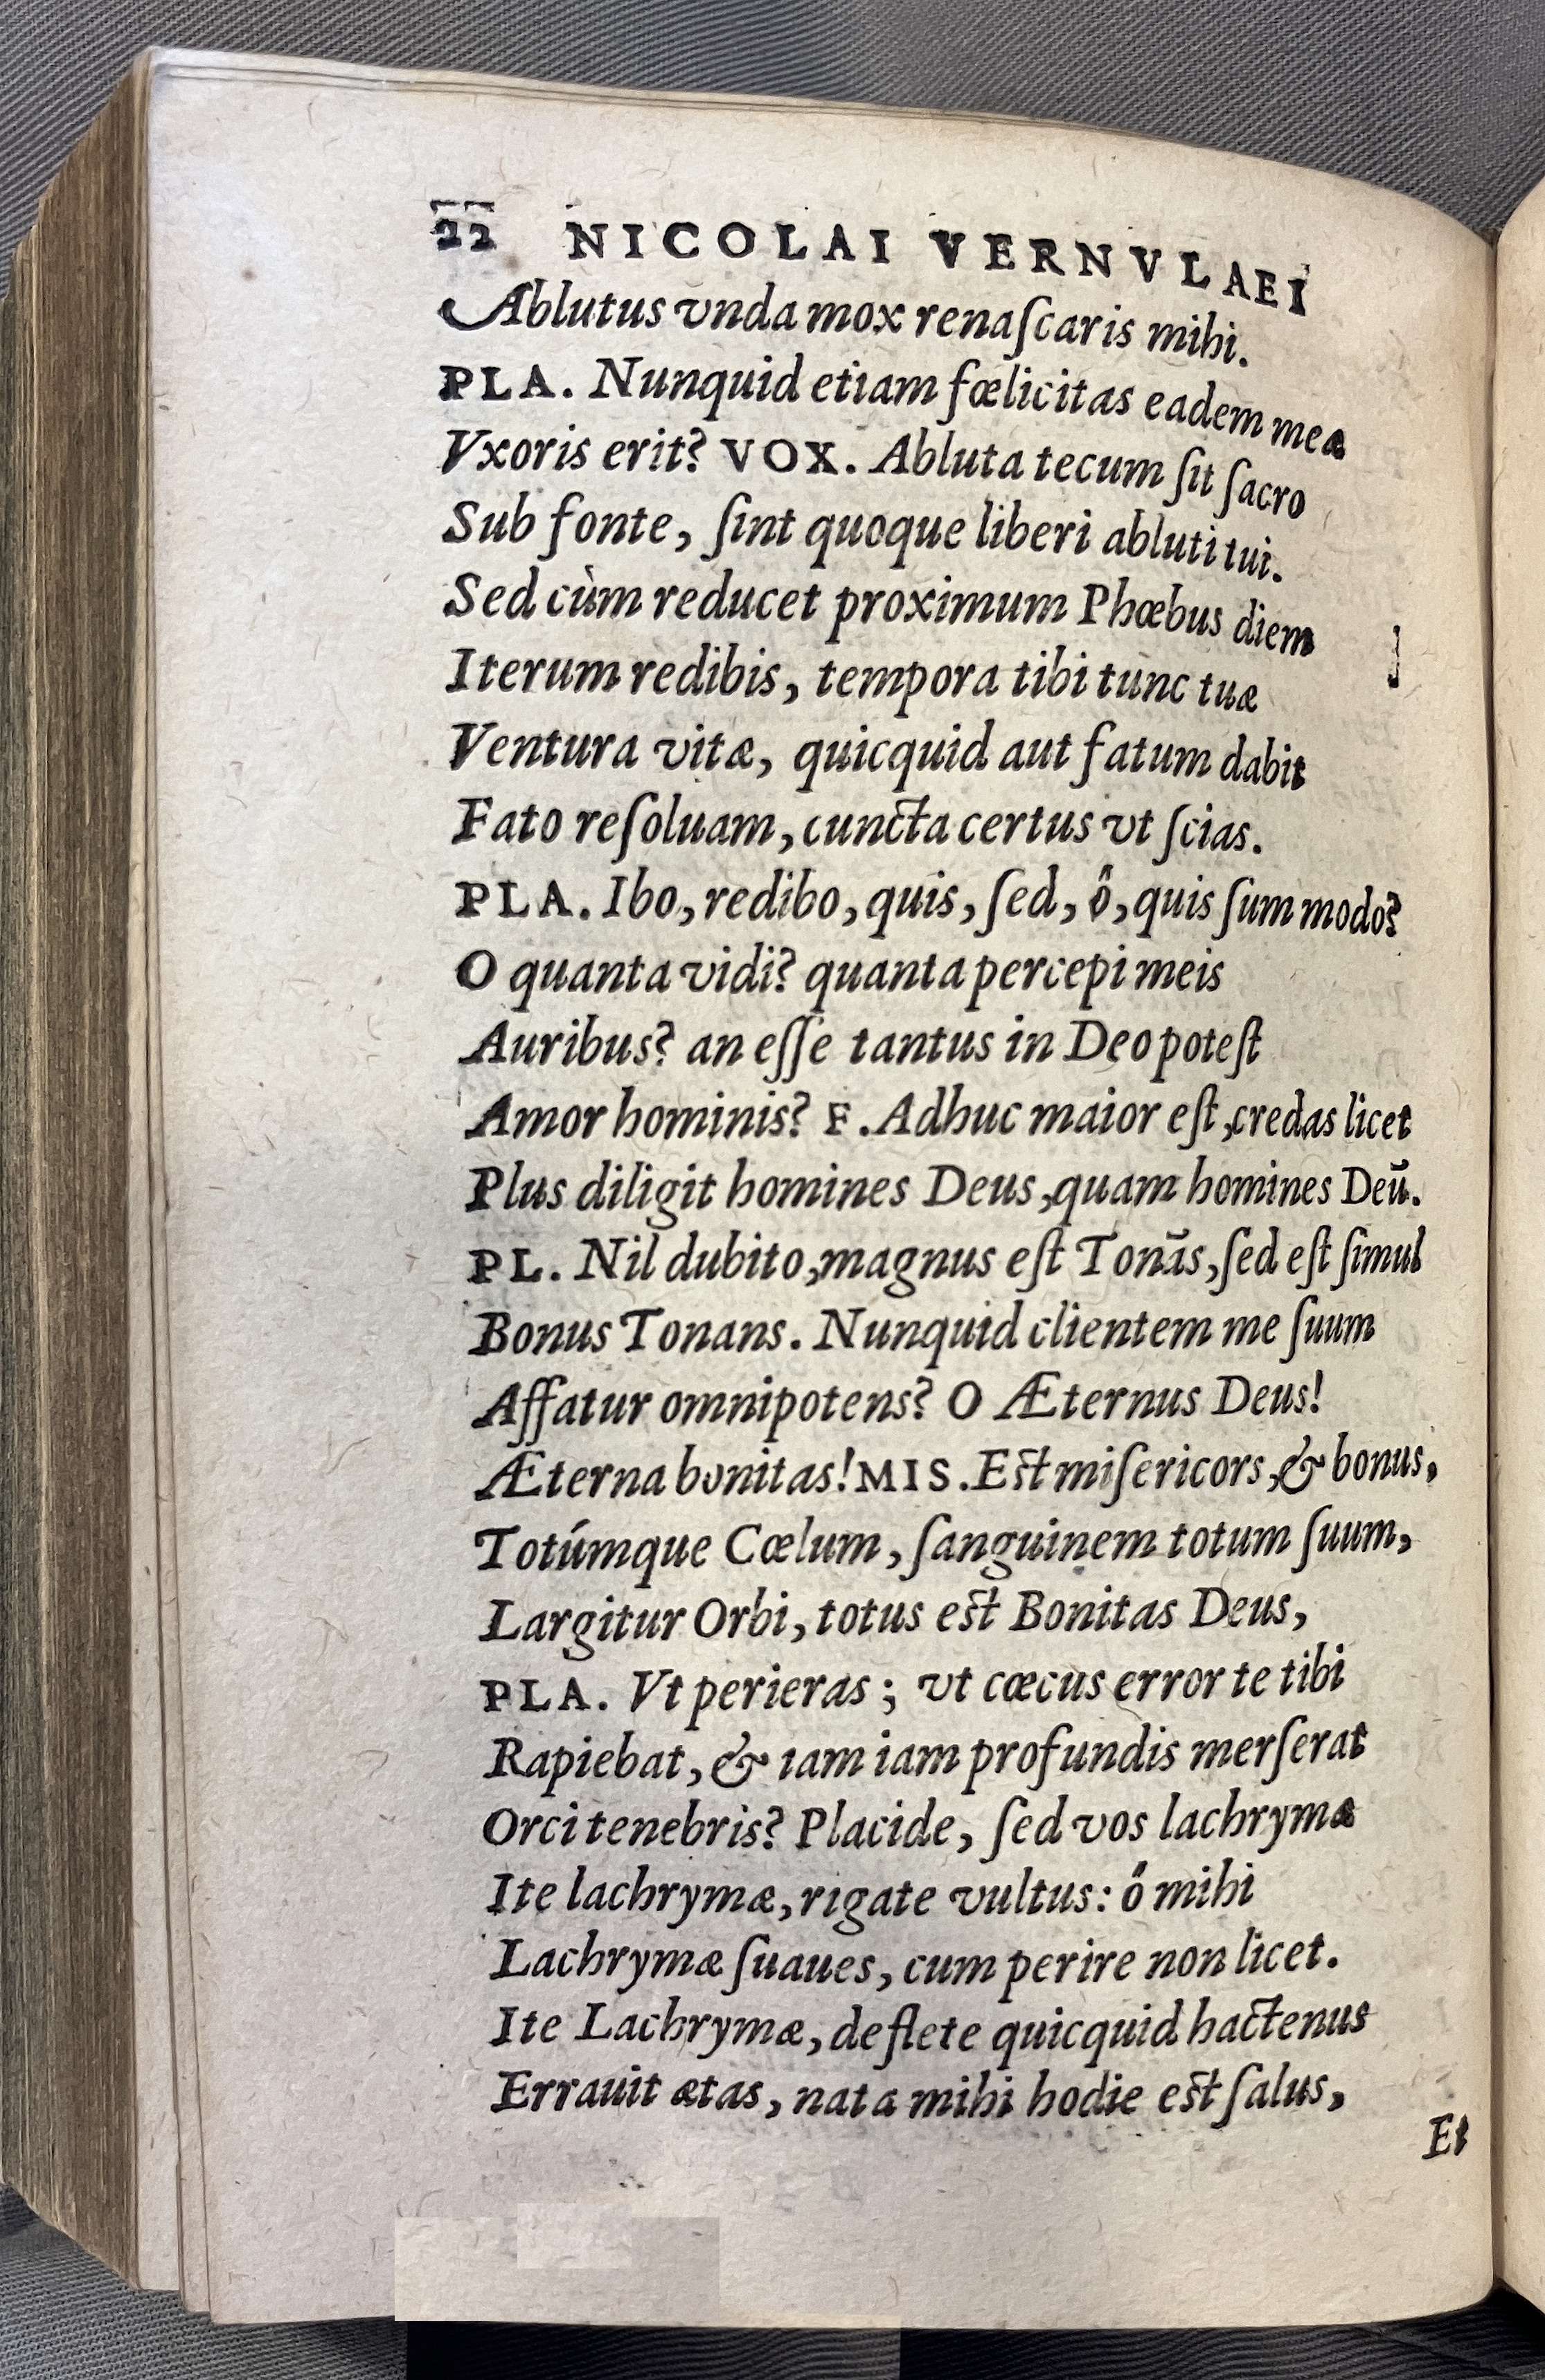 22 NICOLAI VERNVLAEI
Ablutus vnda mox renaſcaris mihi.
PLA. Nunquid etiam fœlicitas eadem meæ
Vxoris erit? VOX. Abluta tecum ſit ſacro
Sub fonte, ſint quoque liberi abluti tui.
Sed cùm reducet proximum Phœbus diem
Iterum redibis, tempora tibi tunc tuæ
Ventura vitæ, quicquid aut fatum dabit
Fato reſoluam, cuncta certus vt ſcias.
PLA. Ibo, redibo, quis, ſed, ô, quis ſum modo?
O quanta vidi? quanta percepi meis
Auribus? an eſſe tantus in Deo poteſt
Amor hominis? F. Adhuc maior eſt, credas licet
Plus diligit homines Deus, quam homines Deū.
PL. Nil dubito, magnus eſt Tonās, ſed eſt ſimul
Bonus Tonans. Nunquid clientem me ſuum
Affatur omnipotens? O Æternus Deus!
Æterna bonitas! MIS. Eſt miſericors, & bonus,
Totúmque Cœlum, ſanguinem totum ſuum,
Largitur Orbi, totus eſt Bonitas Deus,
PLA. Vt perieras; vt cœcus error te tibi
Rapiebat, & iam iam profundis merſerat
Orci tenebris? Placide, ſed vos lachrymæ
Ite lachrymæ, rigate vultus: ô mihi
Lachrymæ ſuaues, cum perire non licet.
Ite Lachrymæ, deflete quicquid hactenus
Errauit ætas, nata mihi hodie eſt ſalus,
Et